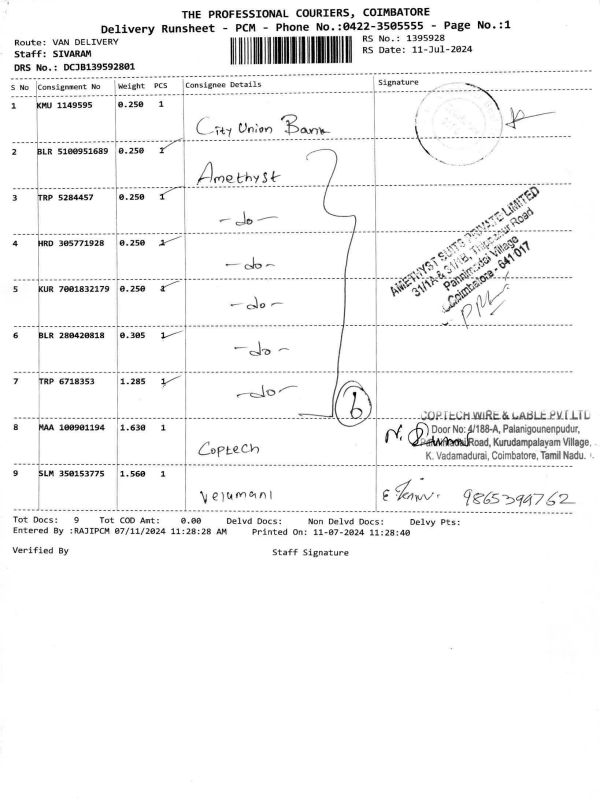 THE PROFESSIONAL COURIERS, COIMBATORE
Delivery Runsheet - PCM - Phone No.:0422-3505555 - Page No.:1
Route: VAN DELIVERY
Staff: SIVARAM
DRS No.: DCJB139592801
RS No.: 1395928
RS Date: 11-Jul-2024
S No Consignment No Weight PCS Consignee Details Signature
1 KMU 1149595 0.250 1
City Union Bank
2 BLR 5100951689 0.250 1
Amethyst
3 TRP 5284457 0.250 1
-do-
4 HRD 305771928 0.250 1
-do-
5 KUR 7001832179 0.250 1
-do-
6 BLR 280420818 0.305 1
-do-
7 TRP 6718353 1.285 1
-do-
6
AMETHYST SUITS PRIVATE LIMITED
31/1A & 31/1B, Thippanur Road
Pannimadai Village
Coimbatore - 641 017
8 MAA 100901194 1.630 1
Coptech
COPTECH WIRE & CABLE PVT LTD
Door No: 4/188-A, Palanigounenpudur,
Pannimadai Road, Kurudampalayam Village,
K. Vadamadurai, Coimbatore, Tamil Nadu.
9 SLM 350153775 1.560 1
Velumani
9865399762
Tot Docs: 9 Tot COD Amt: 0.00 Delvd Docs: Non Delvd Docs: Delvy Pts:
Entered By :RAJIPCM 07/11/2024 11:28:28 AM Printed On: 11-07-2024 11:28:40
Verified By Staff Signature